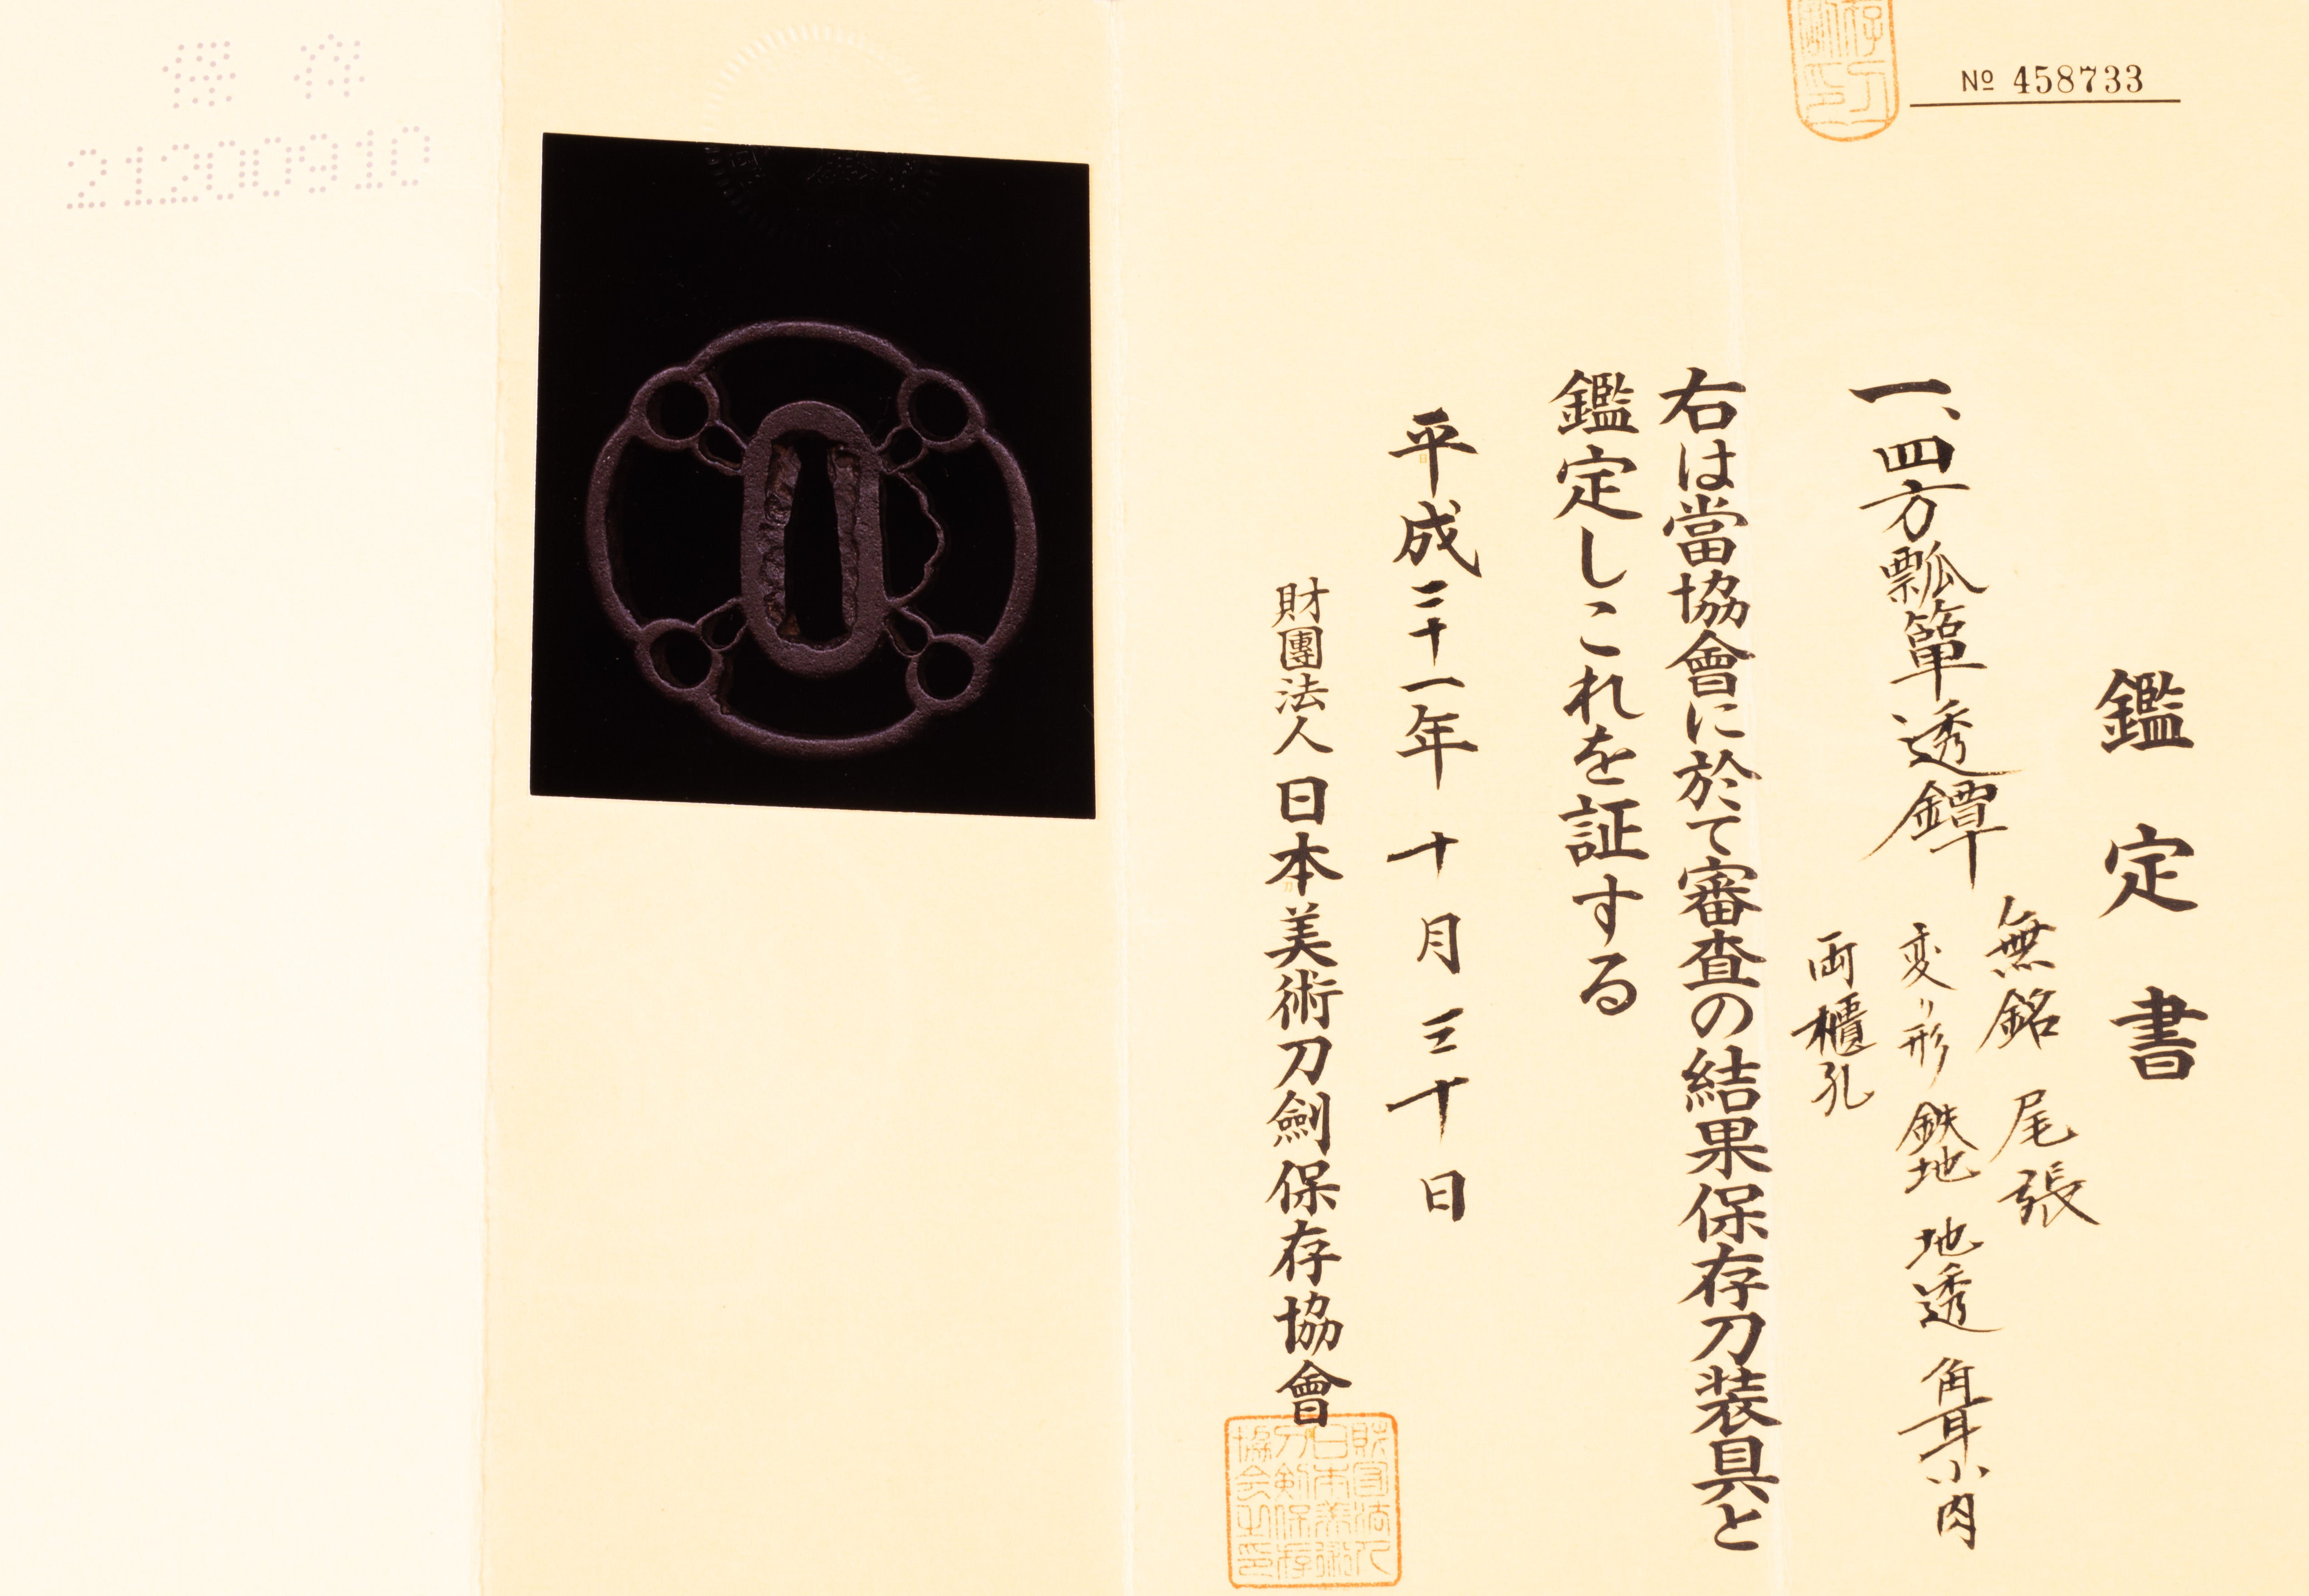 № 458733
鑑定書
一、四方瓢簞透鐔
無銘 尾張
変り形 鉄地 地透 角耳小肉
両櫃孔
右は當協會に於て審査の結果保存刀装具と
鑑定しこれを証する
平成二十一年 十月 三十日
財團法人 日本美術刀劍保存協會
財団法人
日本美術
刀剣保存
協会之印
保存
21200910